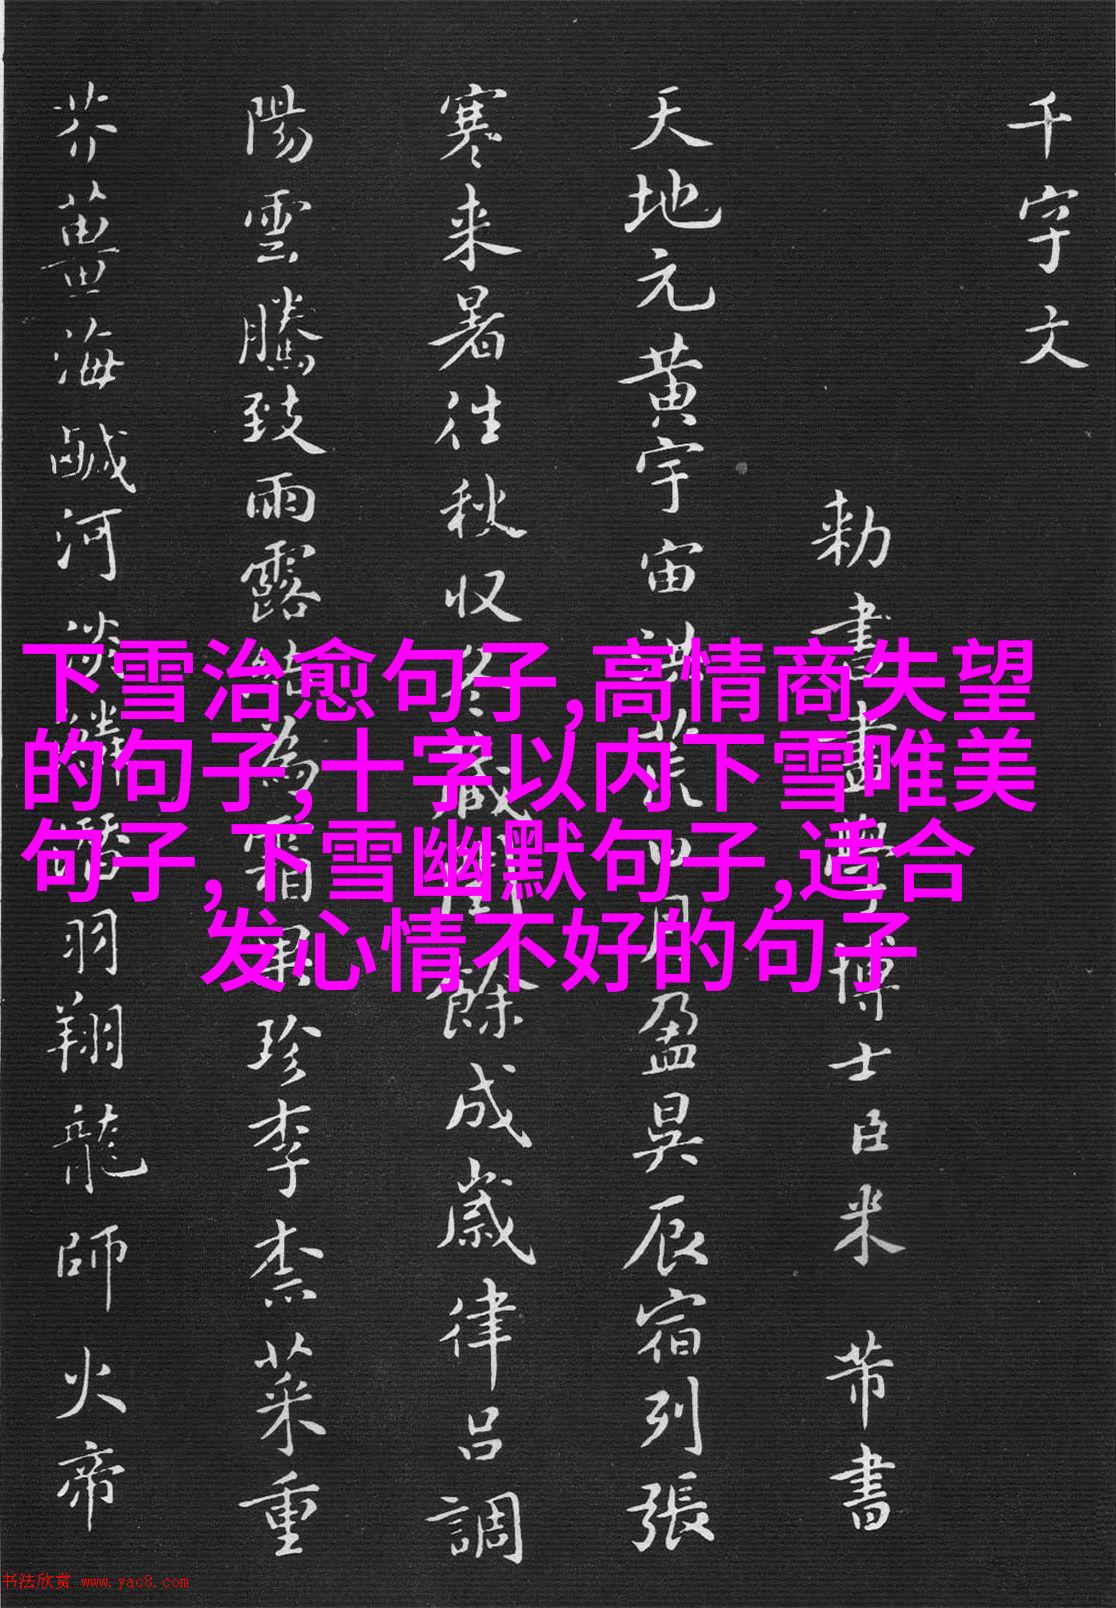 千字文
勅書畫學博士臣米芾書
天地元黄宇宙洪荒日月盈昃辰宿列張
寒来暑往秋収冬藏閏餘成歳律呂調
陽雲騰致雨露結為霜果珍李柰菜重
芥薑海鹹河淡鱗潛羽翔龍師火帝
下雪治愈句子,高情商失望
的句子,十字以内下雪唯美
句子,下雪幽默句子,适合
发心情不好的句子
书法欣赏 www.yac8.com